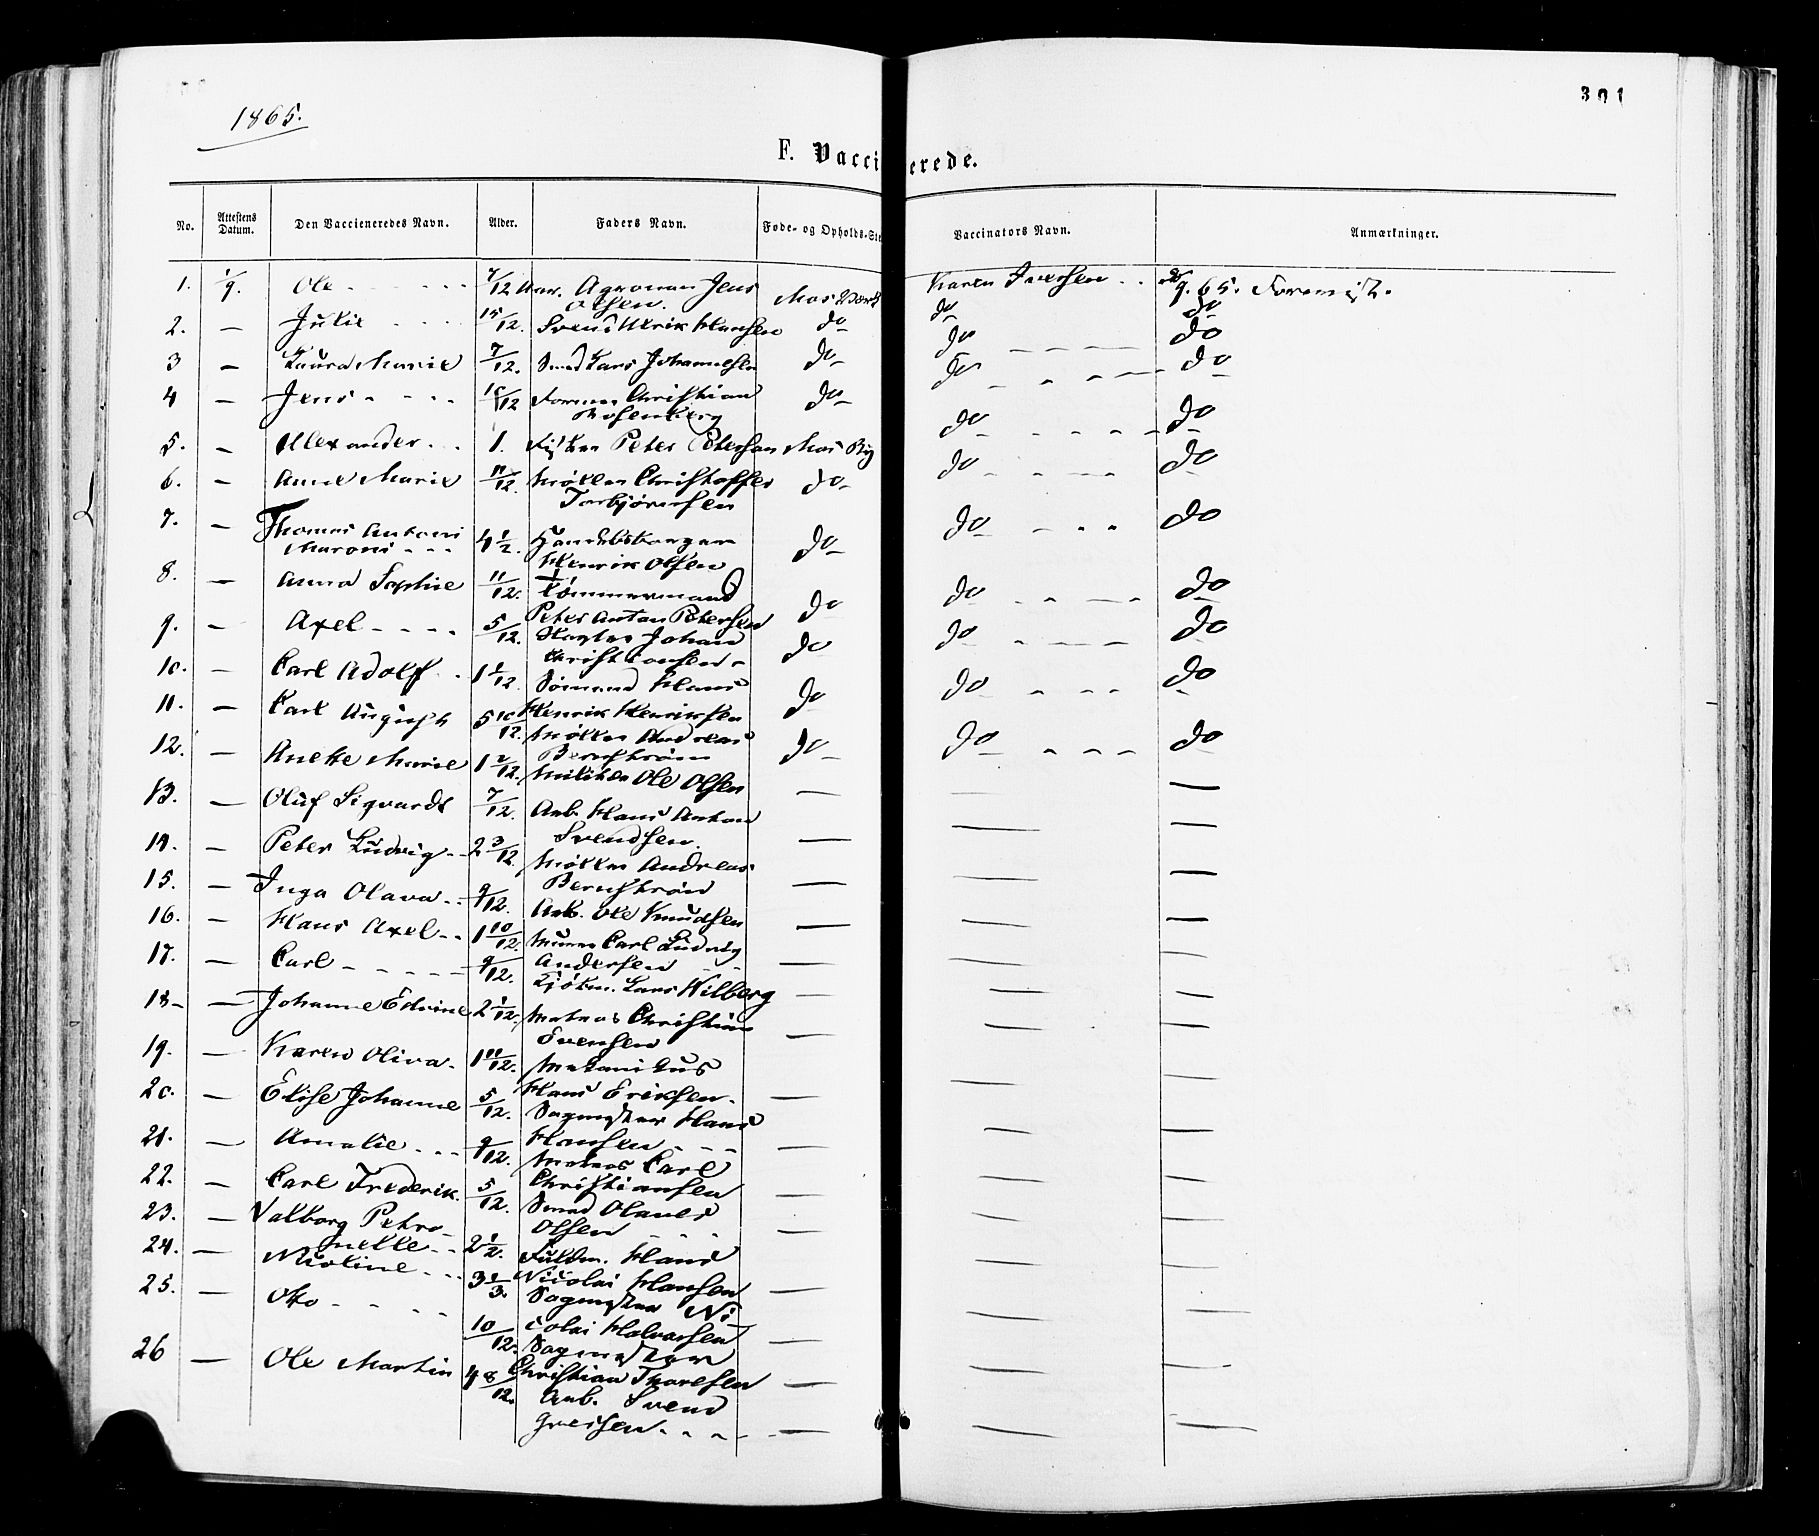 1865.
301
F. Vaccinerede.
No. Attestens Datum. Den Vaccineredes Navn. Alder. Faders Navn. Føde- og Opholds-Ste Vaccinators Navn. Anmærkninger.
1. 1/9. Ole - - - - 7/12 Aar. Agronom Jens Moss Værk Karen Iversen - - 9. 65. Forevist.
Olsen. do do
2. — Julie - - - - 15/12. Svend Ulrik Hansen do do - - - - do
3 — Laura Marie 7/12. Smed Lars Johannesen do do - - - - do
4 — Jens - - - - 10/12 Former Christian do
Rosenberg do - - - - do
5. — Alexander - - 1. Fisker Peter Petersen Mos By do - - - do
6. — Anne Marie 11/12. Møller Christoffer do
Torbjørnsen do - - - do
7. — Thomas Antoni
Maroni - - - 4 1/2. Handelsborger do
Henrik Olsen
8. — Anna Sophie 11/12. Tømmermand do do - - - do
Peter Anton Petersen
9. — Axel - - - - 5/12. Johan do do - - - do
Christiansen -
10. — Carl Adolf - - 1 1/12. Sømand Hans do do - - - do
Henrik Henriksen
11. — Carl August 5 10/12. Møller Andreas do do - - - do
Bernstrøm
12. — Anette Marie 1 2/12. Ole Olsen —
13. — Oluf Sigvardt 7/12. Arb. Hans Anton — — —
Svendsen.
14. — Peter Ludvig - - 2 3/12. Møller Andreas — — —
Bernstrøm
15. — Inga Olava - - 9/12. Arb. Ole Knudsen — — —
16. — Hans Axel - - 1 10/12. Murer Carl Ludvig — — —
Andersen - -
17. — Carl - - - - - 9/12. Kjøbm. Lars Wilberg — — —
18 - — Johanne Edvine 2 1/12. Matros Christian — — —
Evensen
19. — Karen Oliva - 1 11/12. Mekanikus — —
Hans Eriksen -
20. — Elise Johanne 5/12. Sagmester Hans — — —
Hansen - - -
21. — Amalie - - - 9/12. Matros Carl — — —
Christiansen
22. — Carl Frederik. 5/12. Smed Olaves — — —
Olsen - - -
23. — Valborg Petro-
nelle - - 2 1/2. Fuldm. Hans — — —
Nicolai Hansen
24. — Nicoline - - - 3 1/3. Sagmester Ni- — — —
colai Halvorsen
25. — Otto - - - - 10/12. Sagmester — — —
Christian Thoresen
26 — Ole Martin 4 8/12. Arb. Svend — — —
Greisen - - - -